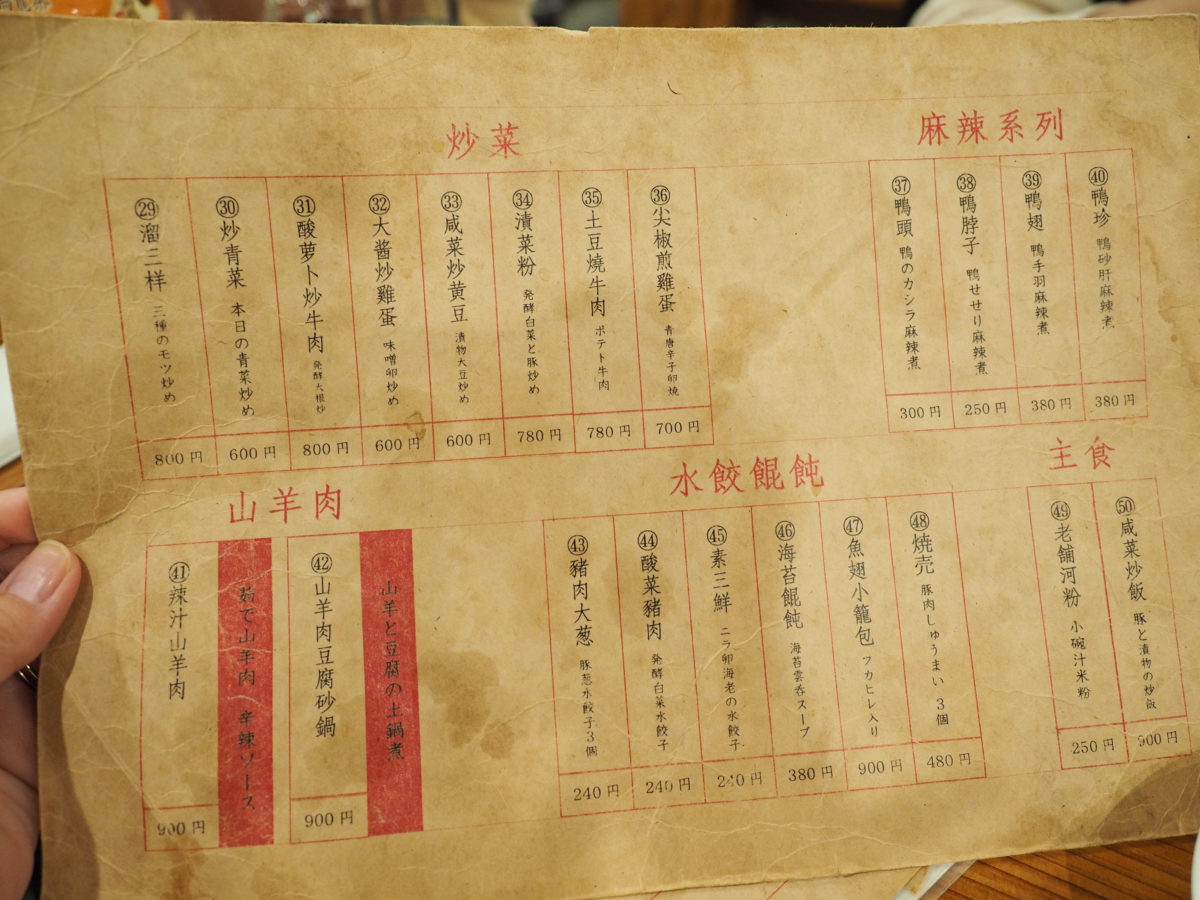 炒菜
㉙溜三样 三種のモツ炒め
800円
㉚炒青菜 本日の青菜炒め
600円
㉛酸萝卜炒牛肉 発酵大根炒
800円
㉜大酱炒雞蛋 味噌卵炒め
600円
㉝咸菜炒黄豆 漬物大豆炒め
600円
㉞漬菜粉 発酵白菜と豚炒め
780円
㉟土豆燒牛肉 ポテト牛肉
780円
㊱尖椒煎雞蛋 青唐辛子卵焼
700円
麻辣系列
㊲鴨頭 鴨のカシラ麻辣煮
300円
㊳鴨脖子 鴨せせり麻辣煮
250円
㊴鴨翅 鴨手羽麻辣煮
380円
㊵鴨珍 鴨砂肝麻辣煮
380円
山羊肉
㊶辣汁山羊肉
900円
茹で山羊肉 辛辣ソース
㊷山羊肉豆腐砂鍋
900円
山羊と豆腐の土鍋煮
水餃餛飩
㊸豬肉大葱 豚葱水餃子3個
240円
㊹酸菜豬肉 発酵白菜水餃子
240円
㊺素三鮮 ニラ卵海老の水餃子
240円
㊻海苔餛飩 海苔雲呑スープ
380円
㊼魚翅小籠包 フカヒレ入り
900円
㊽焼売 豚肉しゅうまい 3個
480円
主食
㊾老舗河粉 小碗汁米粉
250円
㊿咸菜炒飯 豚と漬物の炒飯
900円